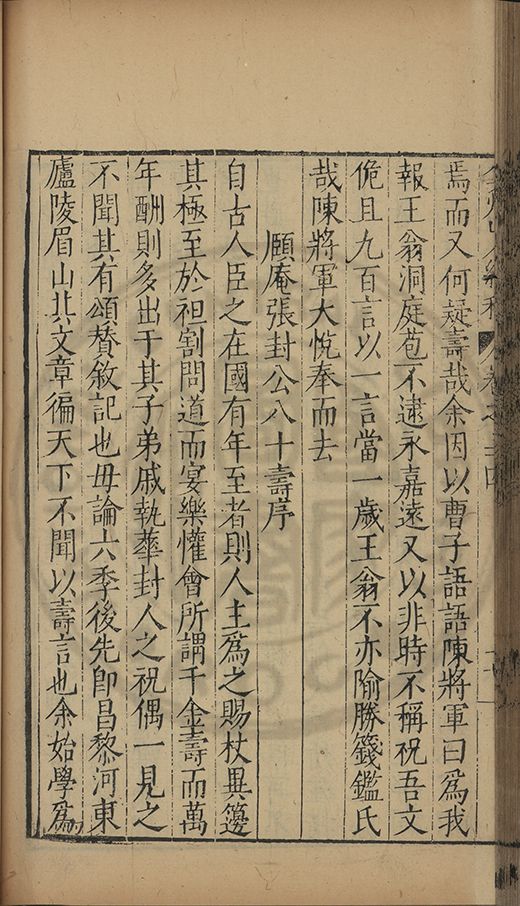 焉而又何疑壽哉余因以曹子語語陳將軍曰爲我
報王翁洞庭苞不逮永嘉遠又以非時不稱祝吾文
佹且九百言以一言當一歲王翁不亦隃勝籛鑑氏
哉陳將軍大悅奉而去
頤庵張封公八十壽序
自古人臣之在國有年至者則人主爲之賜杖異籩
其極至於袒割問道而宴樂懽會所謂千金壽而萬
年酬則多出于其子弟戚執華封人之祝偶一見之
不聞其有頌賛敘記也毋論六季後先卽昌黎河東
廬陵眉山其文章徧天下不聞以壽言也余始學爲